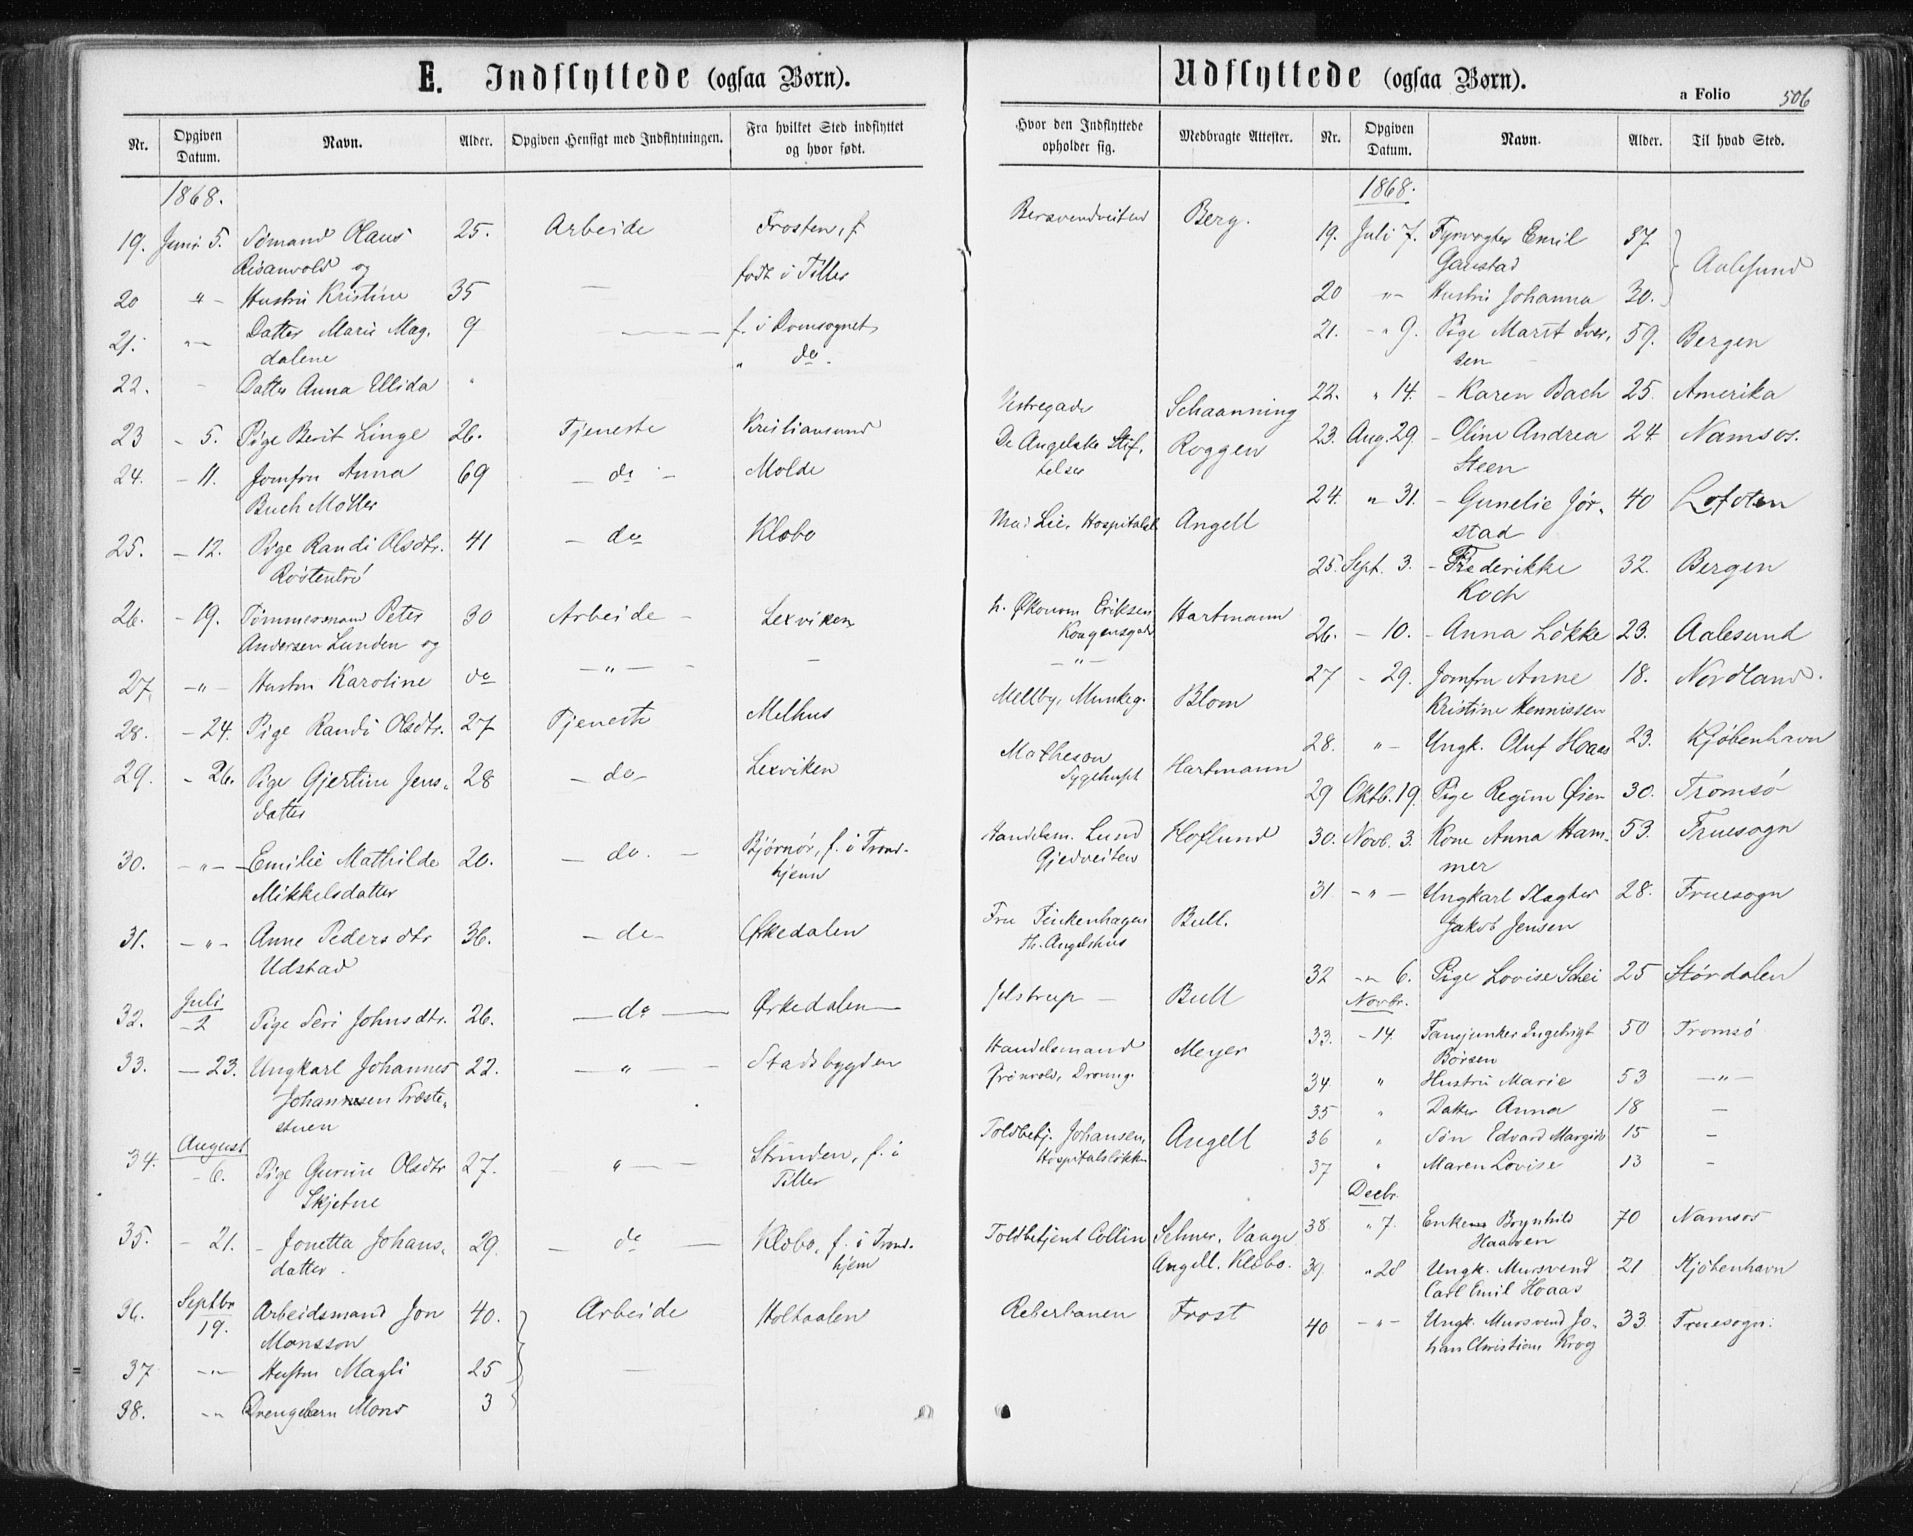 E. Indflyttede (ogsaa Børn).
Nr. Opgiven Datum. Navn. Alder. Opgiven Hensigt med Indflytningen. Fra hvilket Sted indflyttet og hvor født.
1868.
19. Juni 5. Sømand Olaus 25. Arbeide Frosten, f.
Risanvold og født i Tiller
20 " - Hustru Kristine 35 —
21. " - Datter Marie Mag- 9 — f. i Domsognet
dalene " do.
22. - Datter Anna Ellida "
23 - 5. Pige Berit Linge 26. Tjeneste Kristiansund
24. - 11. Jomfru Anna 69 - do - Molde
Buch Møller
25. - 12. Pige Randi Olsdtr. 41 - do Klæbo
26. - 19. Tømmermand Peter 30 Arbeide - Lexviken
Andersen Lunden og
27 - " - Hustru Karoline do - " - -
28. - 24. Pige Randi Olsdtr. 27 Tjeneste Melhus
29. - 26. Pige Gjertine Jens- 28 - do - Lexviken
datter
30. - " - Emilie Mathilde 20. - do. - Bjørnør, f. i Trond-
Mikkelsdatter hjem
31. - " - Anne Pedersdtr 36. - do - Ørkedalen
Udstad
Juli
32. - 2 Pige Seri Johnsdtr. 26. - do - Ørkedalen
33. - 23. Ungkarl Johannes 22. - " - Stadsbygden
Johannesen Træste-
stuen
August
34. - 6. Pige Gurine Olsdtr 27. " - Strinden, f. i
Skjetne Tiller
35. - 21. - Jonetta Johans- 29. - do - Klæbo, f. i Trond-
datter. hjem
Septbr
36. 19. Arbeidsmand Jon 40. Arbeide Holtaalen
Monsson
37 - " - Hustru Magli 25 —
38. " - Drengebarn Mons 3
Udflyttede (ogsaa Børn).
a Folio 506
Hvor den Indflyttede opholder sig. Medbragte Attester. Nr. Opgiven Datum. Navn. Alder. Til hvad Sted.
Bersvendveiten Berg.
Vestregade Schaanning
De Angelske Stif- Roggen
telser
Hospitalsl. Angell
h. Økonom Eriksen Hartmann
Kongensgade
- " -
Mellby, Munkeg. Blom
Matheson Hartmann
Handelsm. Lund Hoflund
Gjedveiten
Fru Finkenhagen Bull.
Th. Angelshus
Jelstrup - Bull
Handelsmand Meyer
Grönvold, Dronng.
Toldbetj. Johansen, Angell
Hospitalsløkken
Toldbetjent Collin Selmer, Vaage
Angell. Klæbo.
Reberbanen Frost
1868.
19. Juli 7. Fyrvogter Emil 37 Aalesund
Ganstad
20 " - Hustru Johanna 30.
21. - " 9. Pige Marit Iver- 59. Bergen
sen
22. " 14. - Karen Bach 25. Amerika
23. Aug 29 - Oline Andrea 24 Namsos.
Steen
24. " 31. - Gunelie Jør- 40 Lofoten
stad
25. Sept. 3. - Frederikke 32. Bergen
Koch
26. - 10. - Anna Løkke 23. Aalesund
27 - 29. Jomfru Anne 18. Nordland.
Kristine Hennissen
28. " - Ungk. Oluf Hoaas 23. Kjøbenhavn
29 Oktb. 19. Pige Regine Øien 30. Tromsø
30. Novb. 3. Kone Anna Ham- 53. Fruesogn
mer
31 - " - Ungkarl Slagter 28. Fruesogn
Jakob Jensen
32 - " 6. Pige Lovise Schei 25 Størdalen
Novbr.
33. - 14. Fanejunker Ingebrigt 50 Tromsø
Børsen
34 " Hustru Marie 53 - " -
35 " Datter Anna 18 -
36 " Søn Edvard Margido 15 -
37 " Maren Lovise 13 -
Decbr
38. " 7. Enke Brynhild 70 Namsos
Haaven
39. " 28 Ungk. Mursvend 21 Kjøbenhavn
Carl Emil Hoaas
40 - " - Ungk. Mursvend Jo- 33 Fruesogn.
han Christian Krog